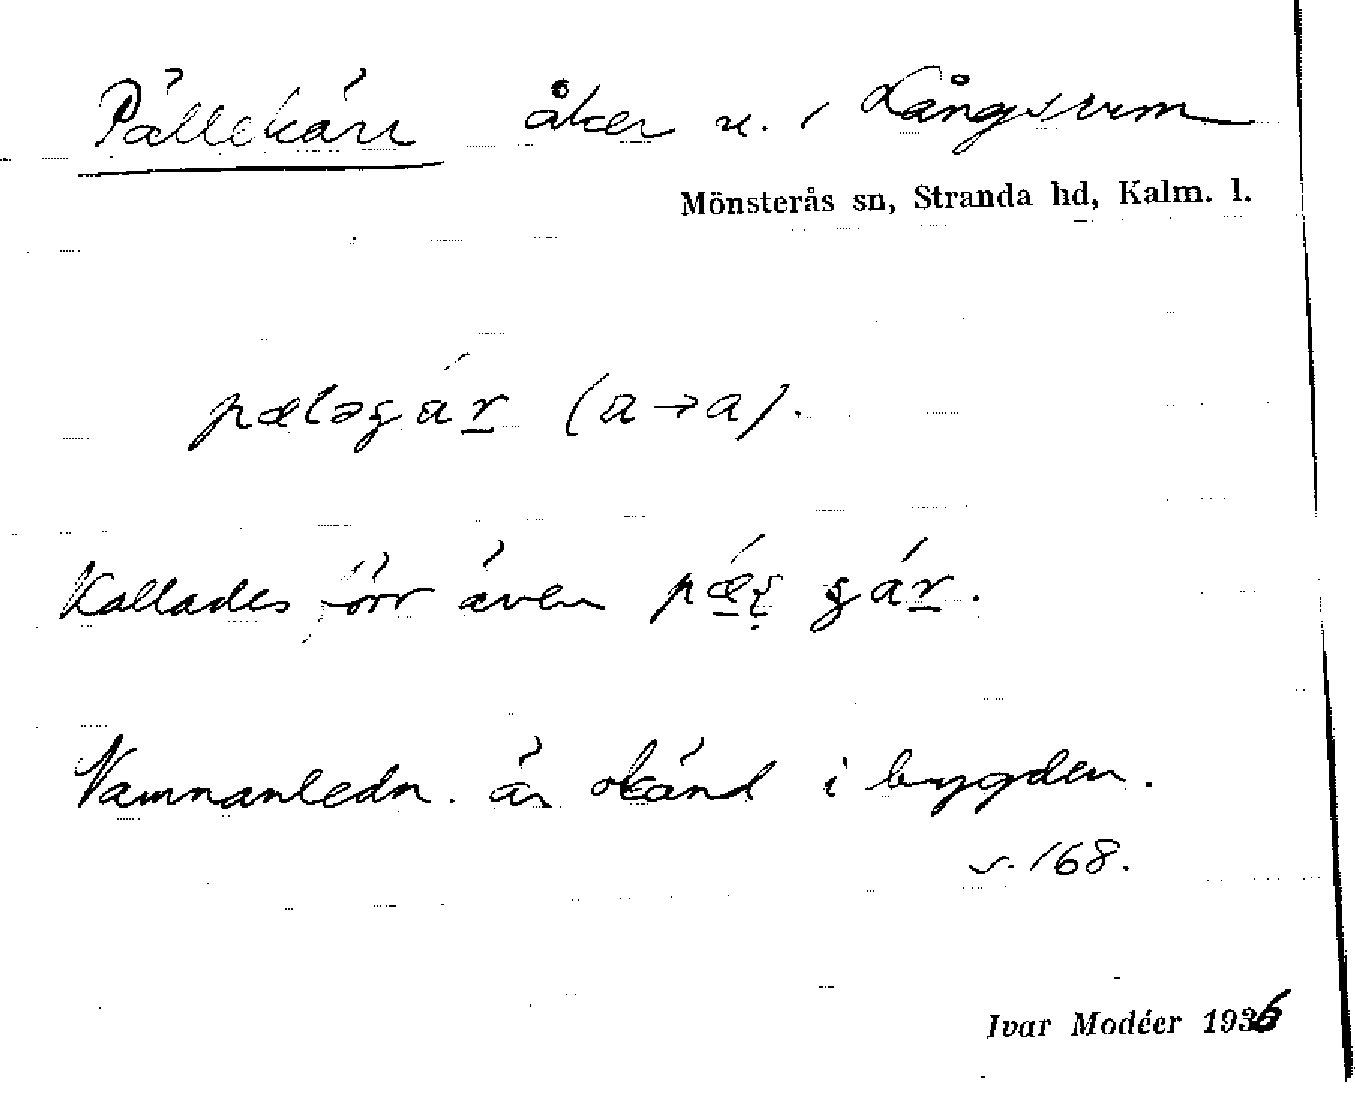 Pällekärr åker u. i Långsrum
Mönsterås sn, Stranda hd, Kalm. l.
(a→a).
Kallades förr även
Namnanledn. är okänd i bygden.
s. 168.
Ivar Modéer 1936